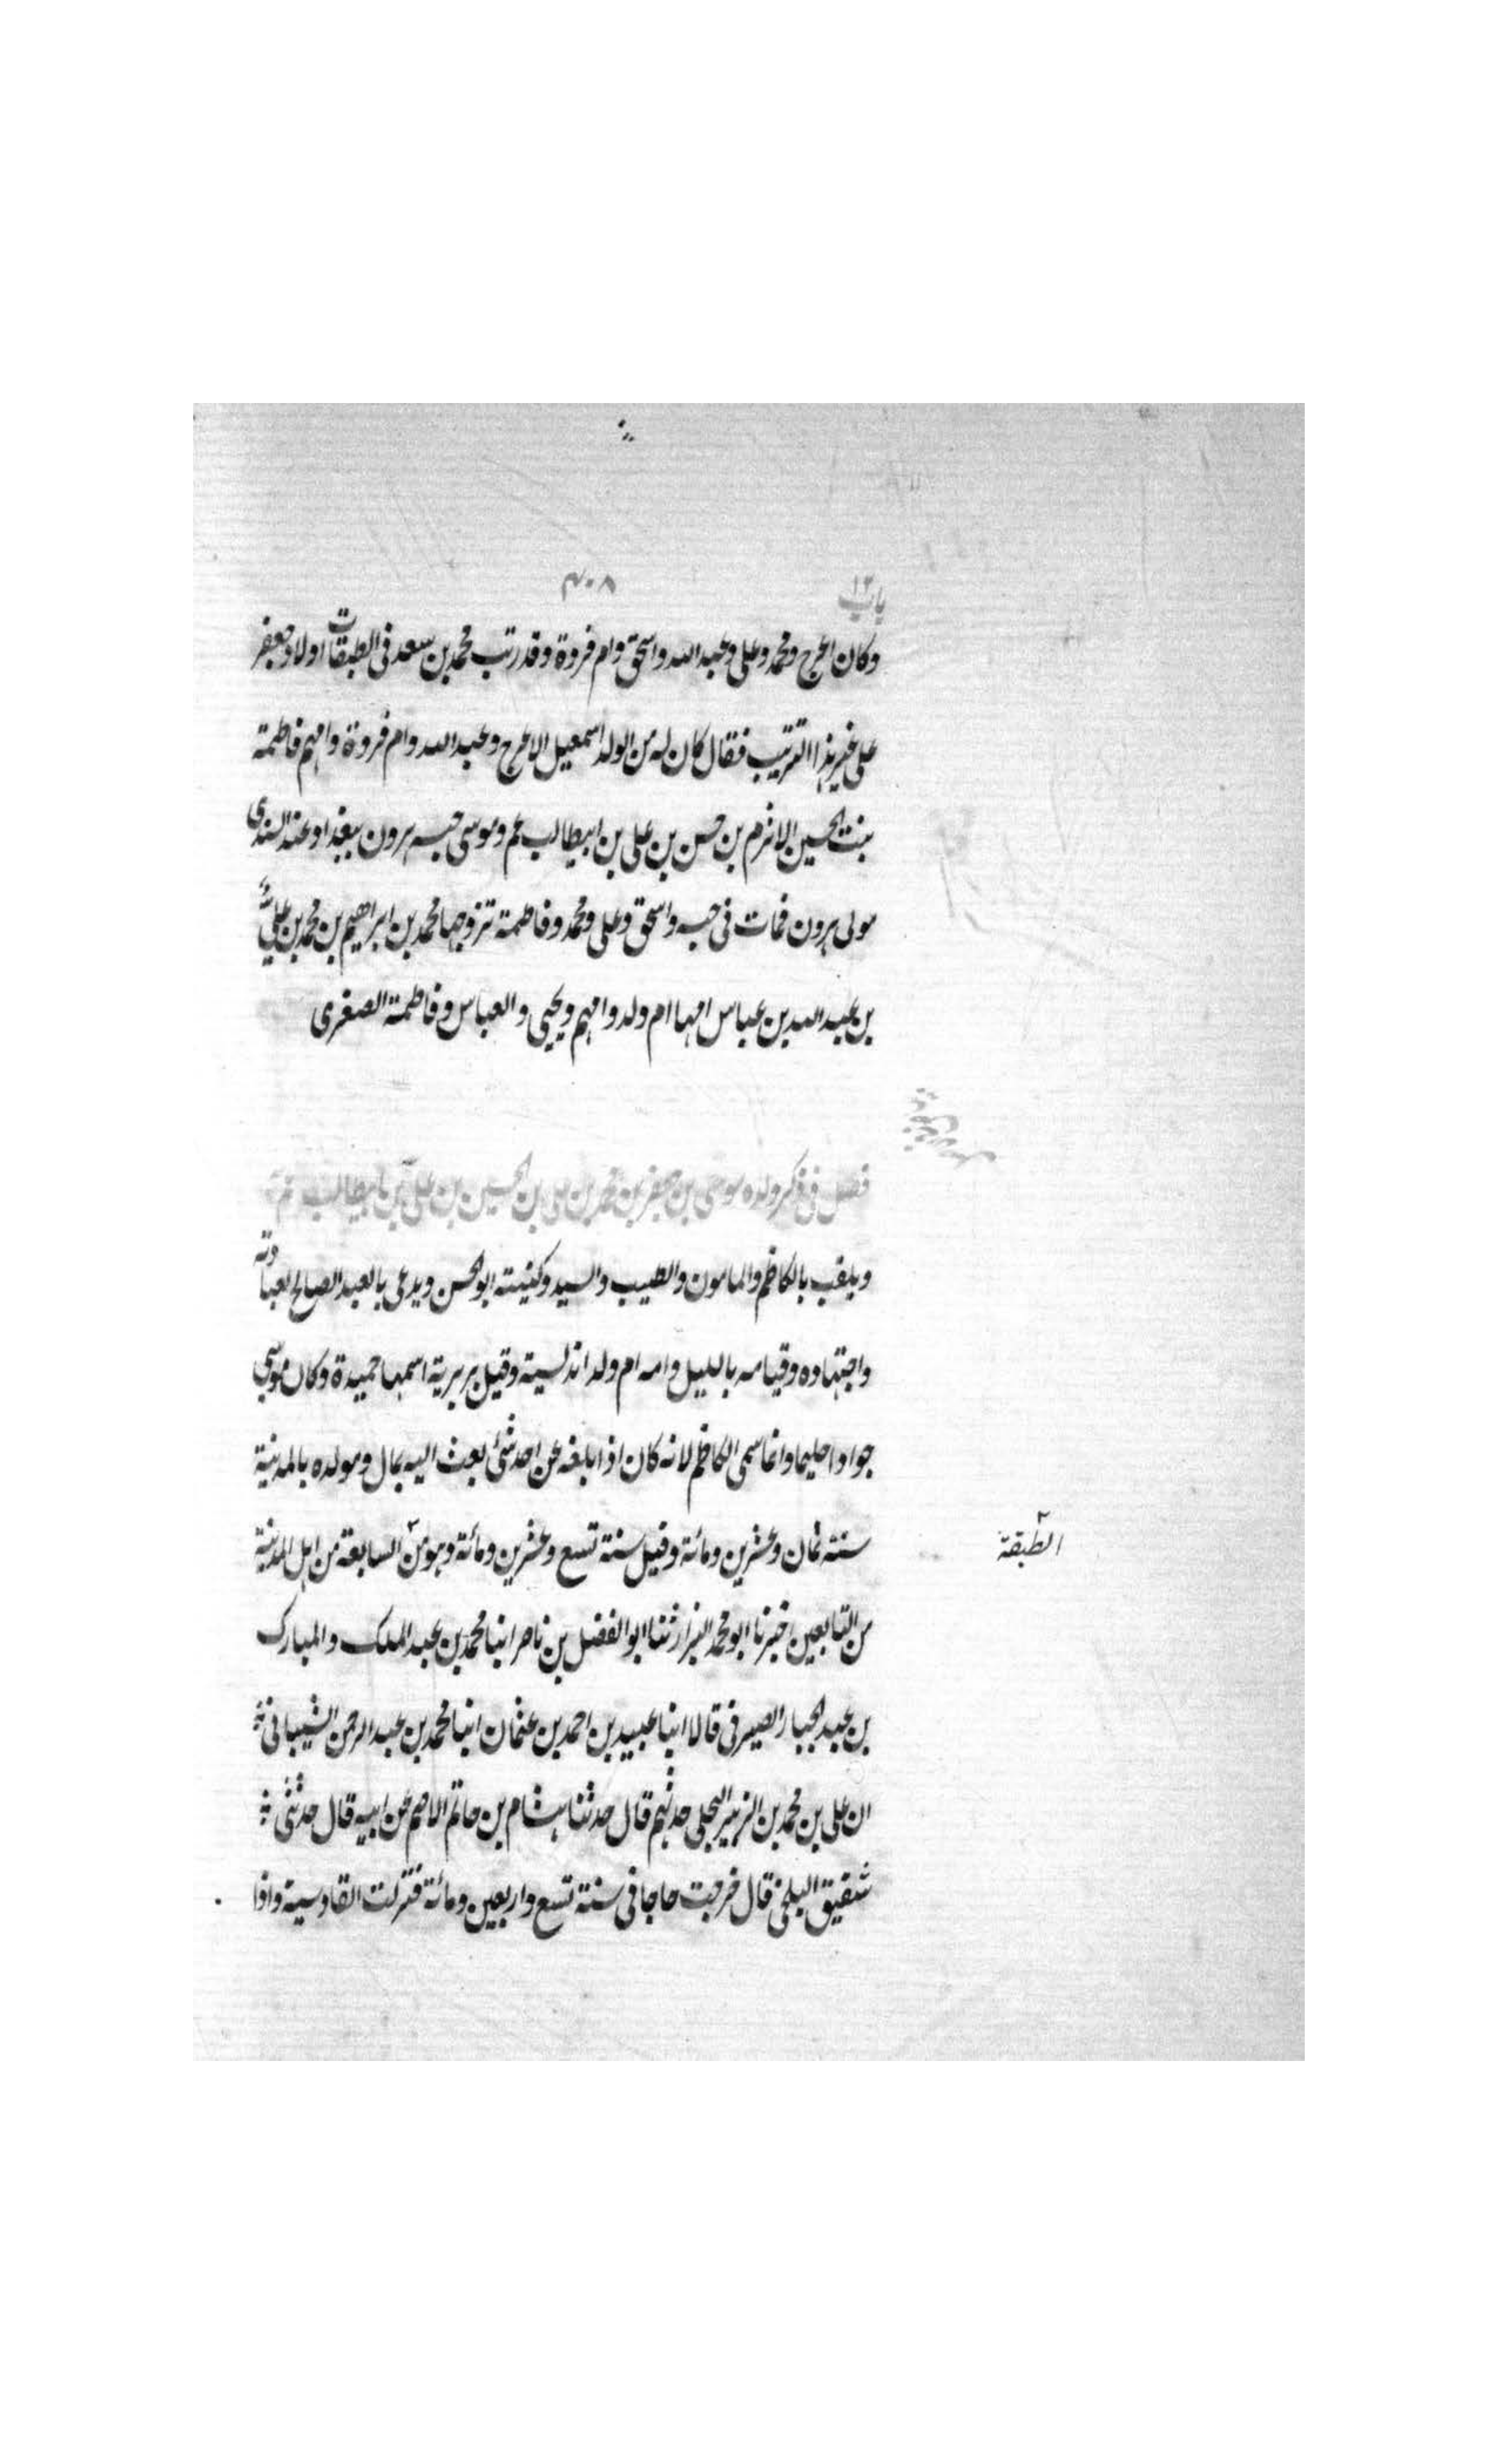 باب ١٢
٤٠٨
وكان اعرج ومحمد وعلى وعبد الله واسحق وام فروة وقد رتب محمد بن سعد فى الطبقات اولاد جعفر
على غير هذا الترتيب فقال كان له من الولد اسمعيل الاعرج وعبد الله وام فروة وامهم فاطمة
بنت الحسين الاثرم بن حسن بن على بن ابيطالب عم وموسى حبسه هرون ببغداد عند السندى
مولى هرون فمات فى حبسه واسحق وعلى ومحمد وفاطمة تزوجها محمد بن ابراهيم بن محمد بن على
بن عبد الله بن عباس امها ام ولد وامهم ويحيى والعباس وفاطمة الصغرى
فصل فى ذكر ولده موسى بن جعفر بن محمد بن على بن الحسين بن على بن ابيطالب
ويلقب بالكاظم والمامون والطيب والسيد وكنيته ابو الحسن ويدعى بالعبد الصالح لعبادته
واجتهاده وقيامه بالليل وامه ام ولد اندلسية وقيل بربرية اسمها حميدة وكان موسى
جوادا حليما وانما سمى الكاظم لانه كان اذا بلغه عن احد شئ بعث اليه بمال ومولده بالمدينة
سنة ثمان وعشرين ومائة وقيل سنة تسع وعشرين ومائة وهو من السابعة من اهل المدينة
الطبقة
من التابعين اخبرنا ابو محمد البزار ثنا ابو الفضل بن ناصر انبا محمد بن عبد الملك والمبارك
بن عبد الجبار الصيرفى قالا انبا عبيد بن احمد بن عثمان انبا محمد بن عبد الرحمن الشيبانى
ان على بن محمد بن الزبير البجلى حدثهم قال حدثنا هشام بن حاتم الاصم عن ابيه قال حدثنى
شقيق البلخى قال خرجت حاجا فى سنة تسع واربعين ومائة فنزلت القادسية واذا